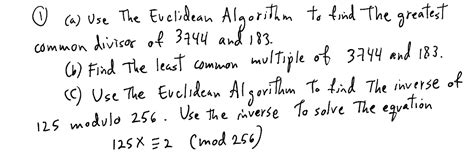 ① (a) Use The Euclidean Algorithm to find The greatest
common divisor of 3744 and 183.
(b) Find The least common multiple of 3744 and 183.
(c) Use The Euclidean Algorithm To find The inverse of
125 modulo 256. Use the inverse To solve The equation
125x ≡ 2 (mod 256)